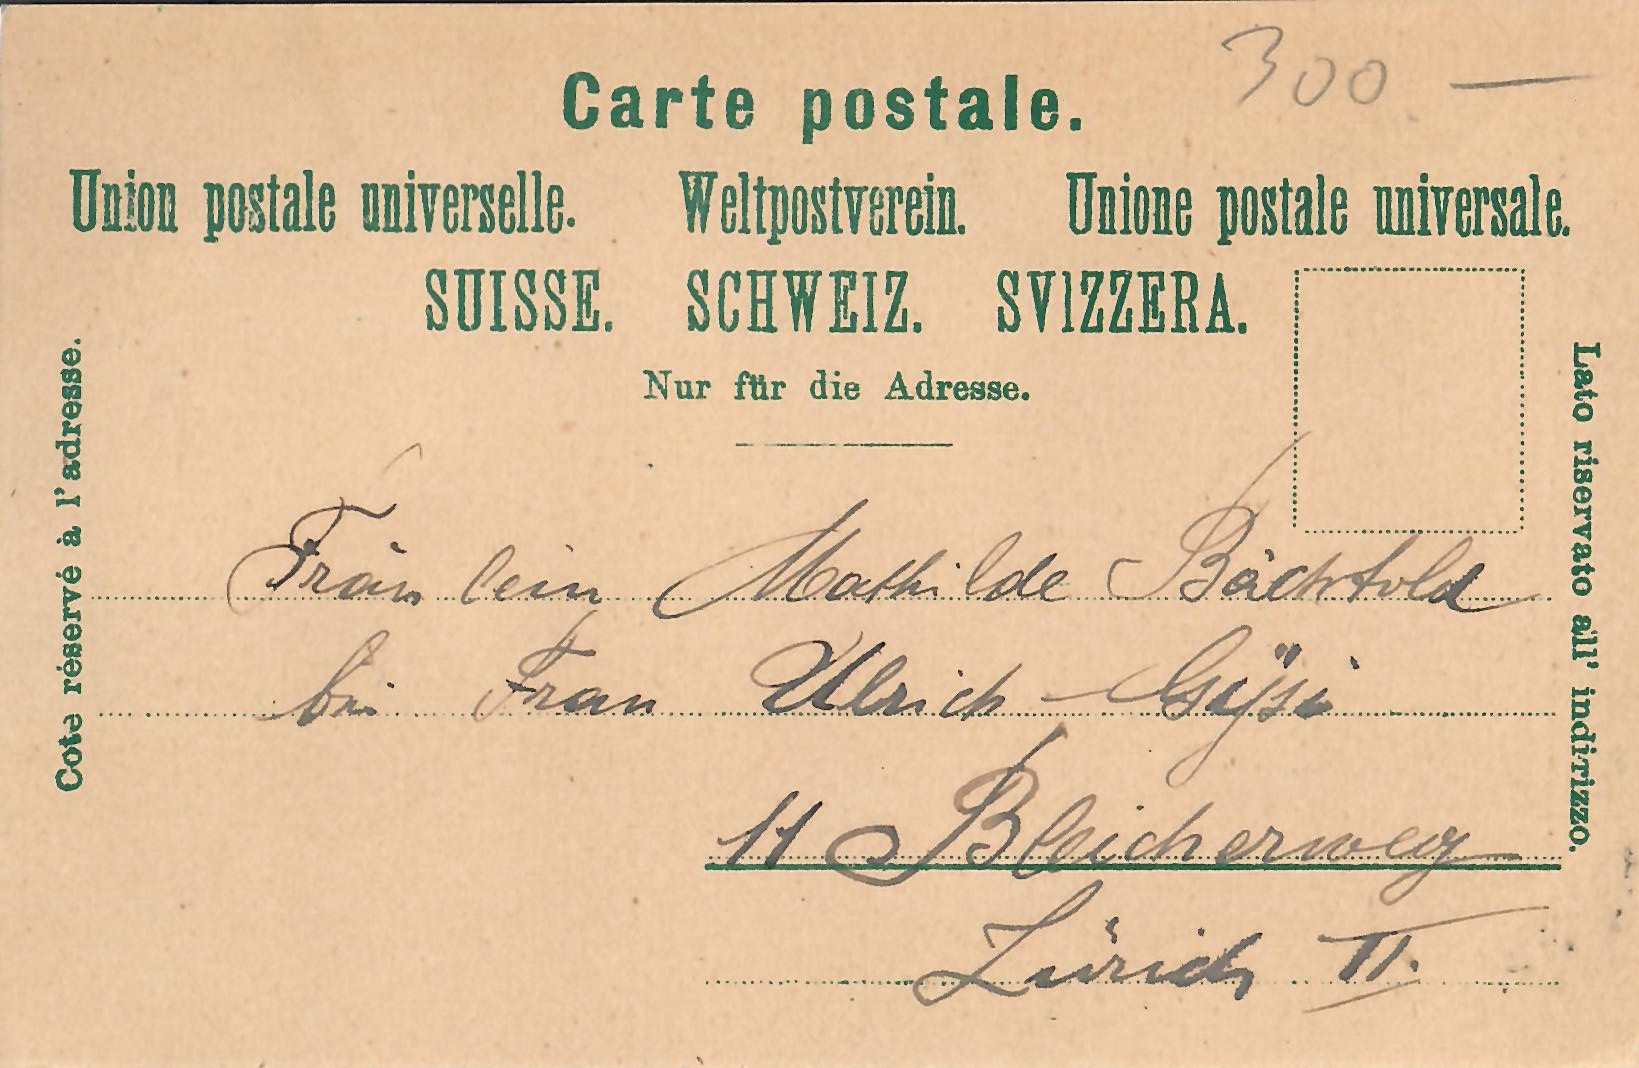 300 —
Carte postale.
Union postale universelle. Weltpostverein. Unione postale universale.
SUISSE. SCHWEIZ. SVIZZERA.
Nur für die Adresse.
Coté réservé à l'adresse.
Lato riservato all' indirizzo.
Fräulein Mathilde Bächtold
bei Frau Ulrich - Gÿsi
11 Bleicherweg
Zürich II.